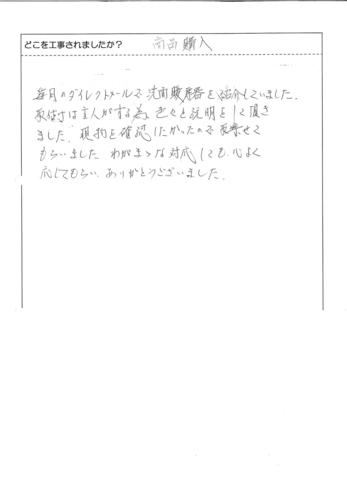 どこを工事されましたか？ 商品購入
毎月のダイレクトメールで洗面販売器を紹介していました。
取付けは主人がする為、色々と説明をして頂き
ました。現物を確認したかったので
もらいました わがままな対応しても、心よく
応じてもらい、ありがとうございました。